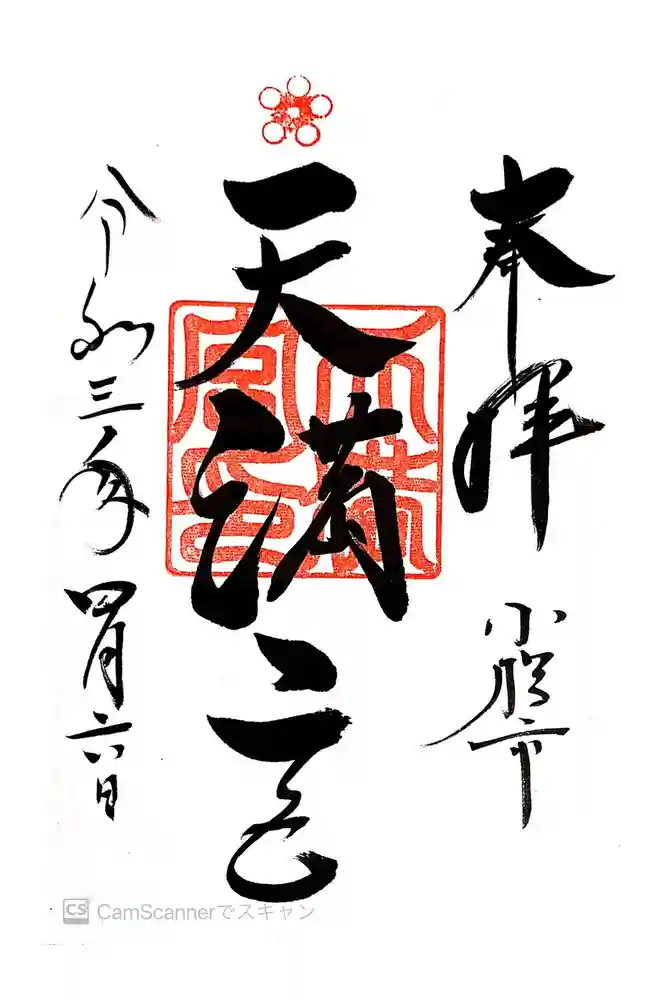 奉拝
小松市
天満宮
天満宮印
令和三年四月六日
CS CamScannerでスキャン